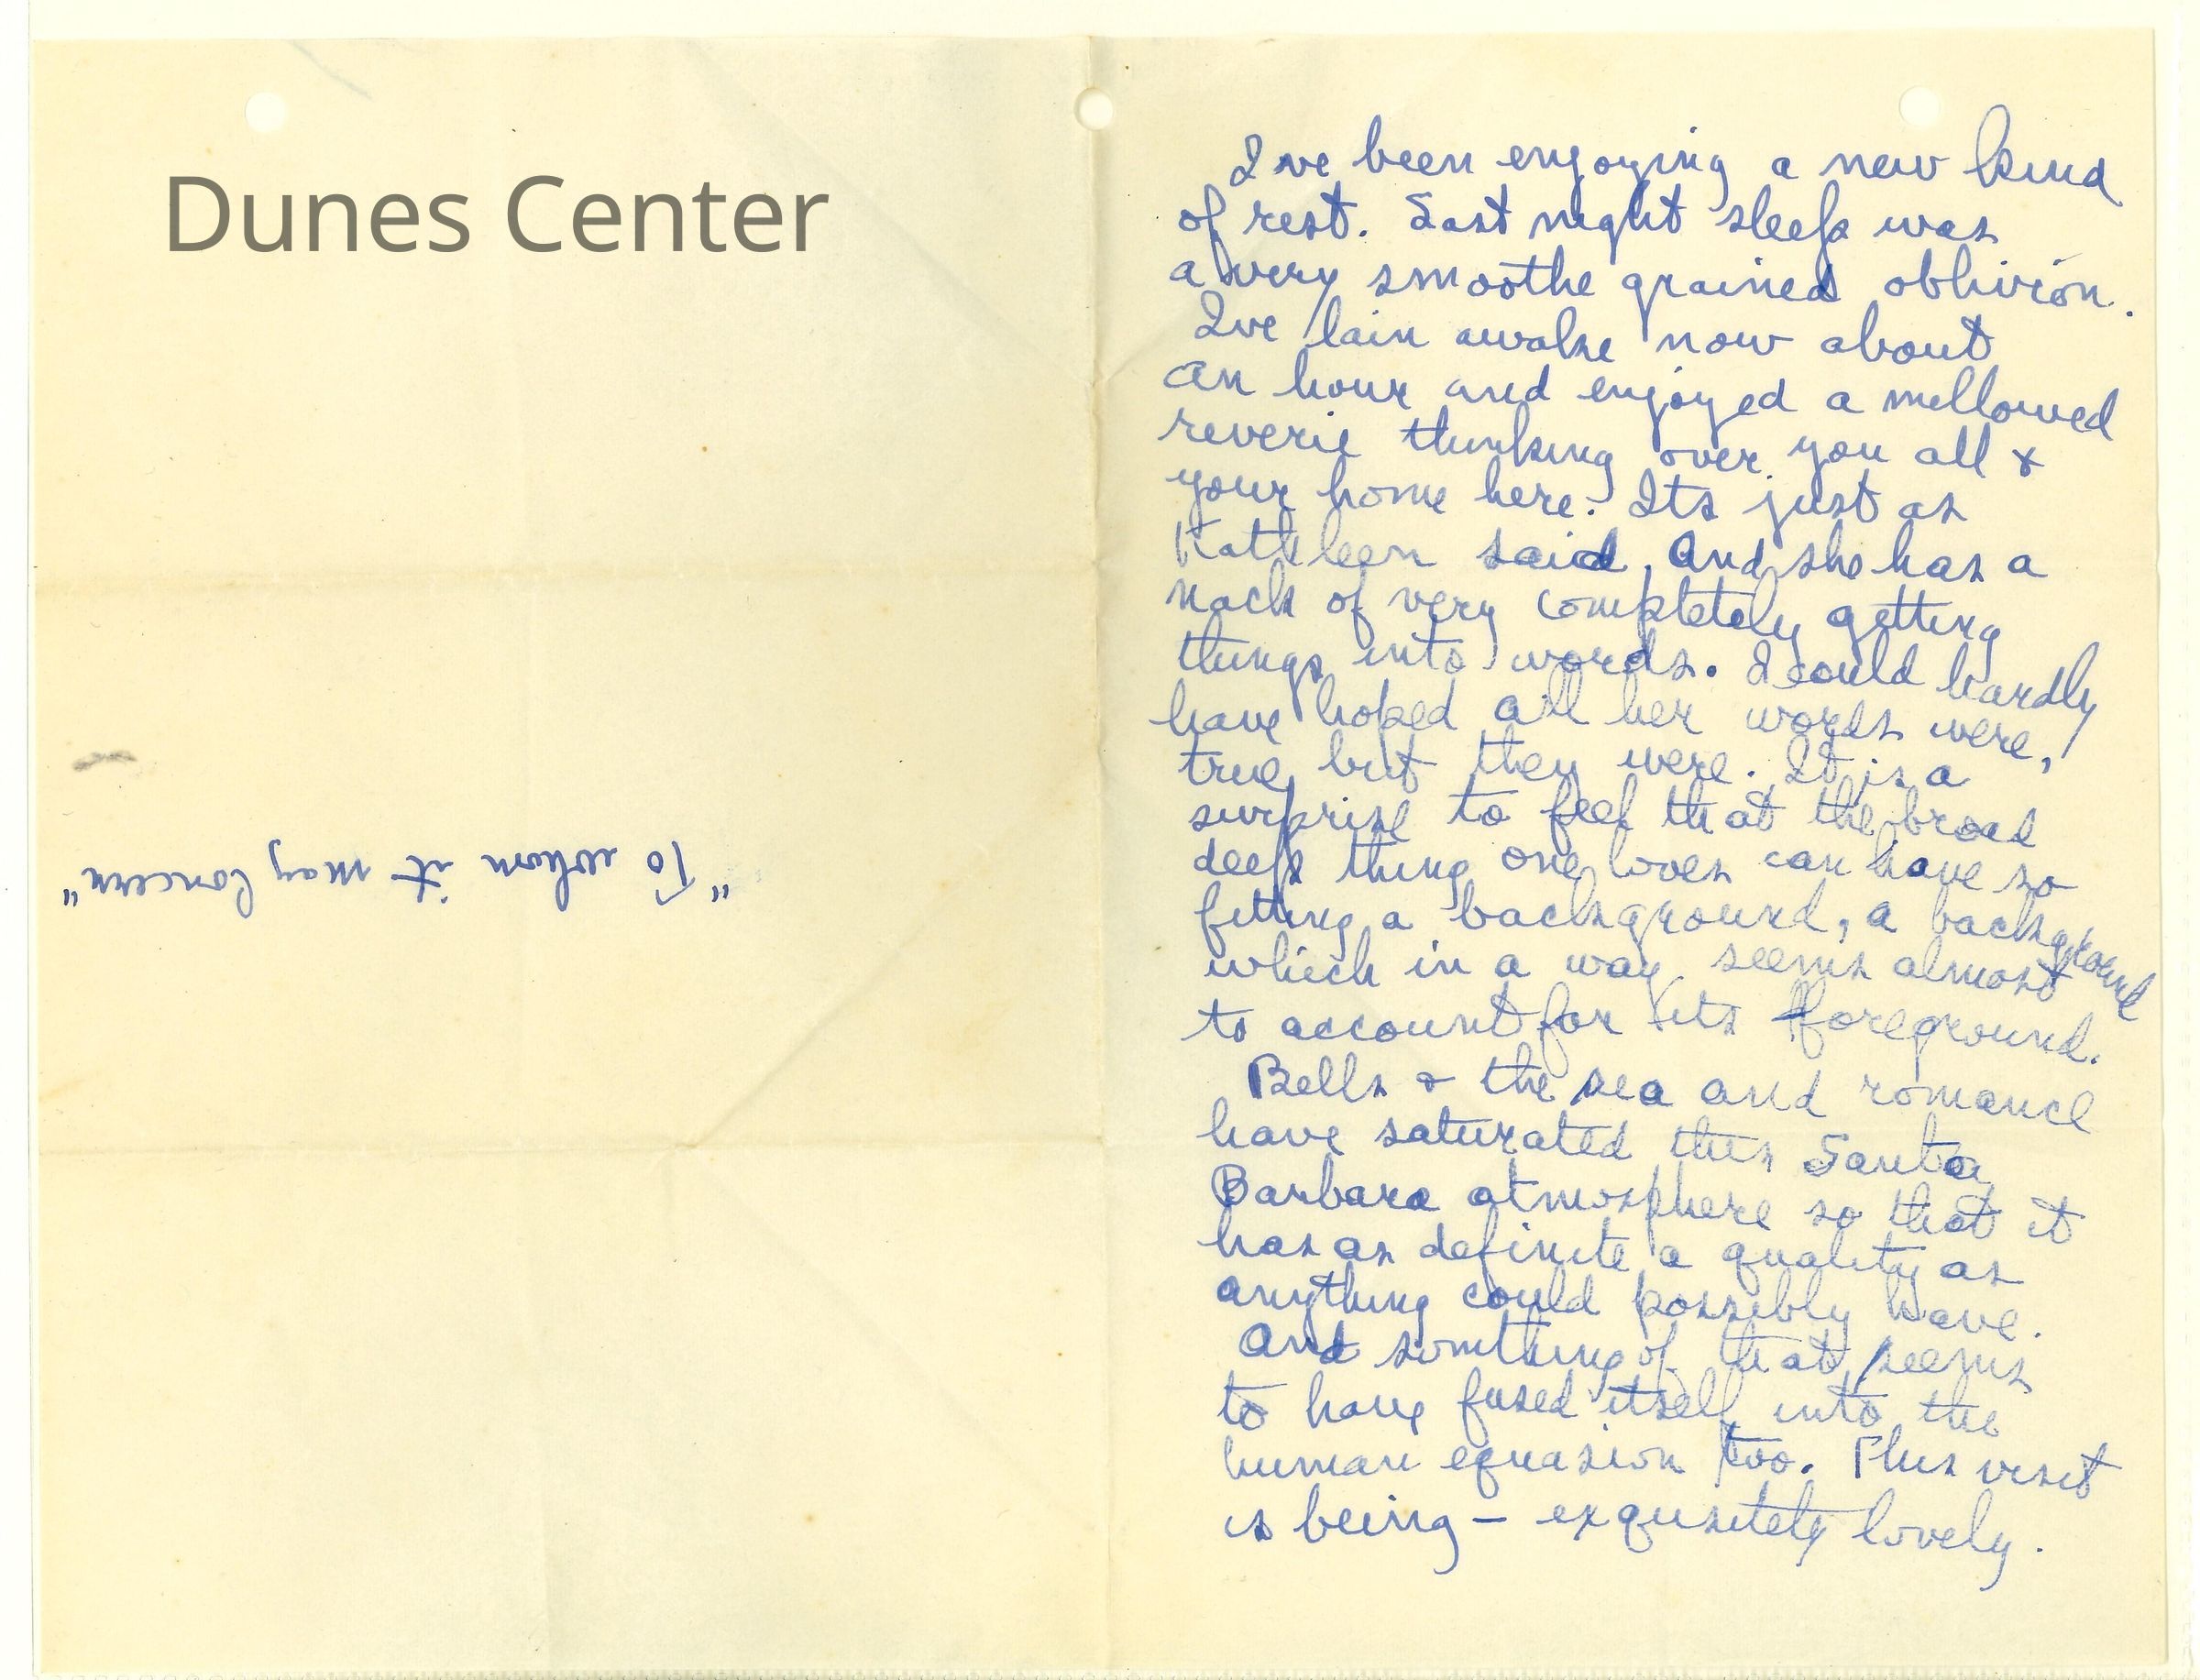 Dunes Center
"To whom it may Concern"
Ive been engoying a new kind
of rest. Last night sleep was
a very smoothe grained oblivion.
Ive lain awake now about
an hour and enjoyed a mellowed
reverie thinking over you all &
your home here. Its just as
Kathleen said, And she has a
nack of very completely getting
things into words. I could hardly
have hoped all her words were,
true, but they were. It is a
surprise to feel that the broad
deep thing one loves can have so
fitting a background, a background
which in a way seems almost
to account for its foreground.
Bells & the sea and romance
have saturated this Santa
Barbara atmosphere so that it
has as definite a quality as
anything could possibly have.
And somthing of that seems
to have fused itself into the
human equasion too. This visit
is being – exqusitely lovely.